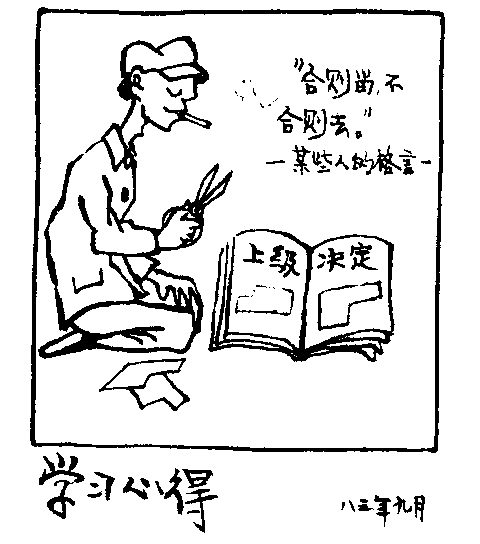 “合则留，不
合则去。”
—某些人的格言—
上级 决定
学习心得
八三年九月